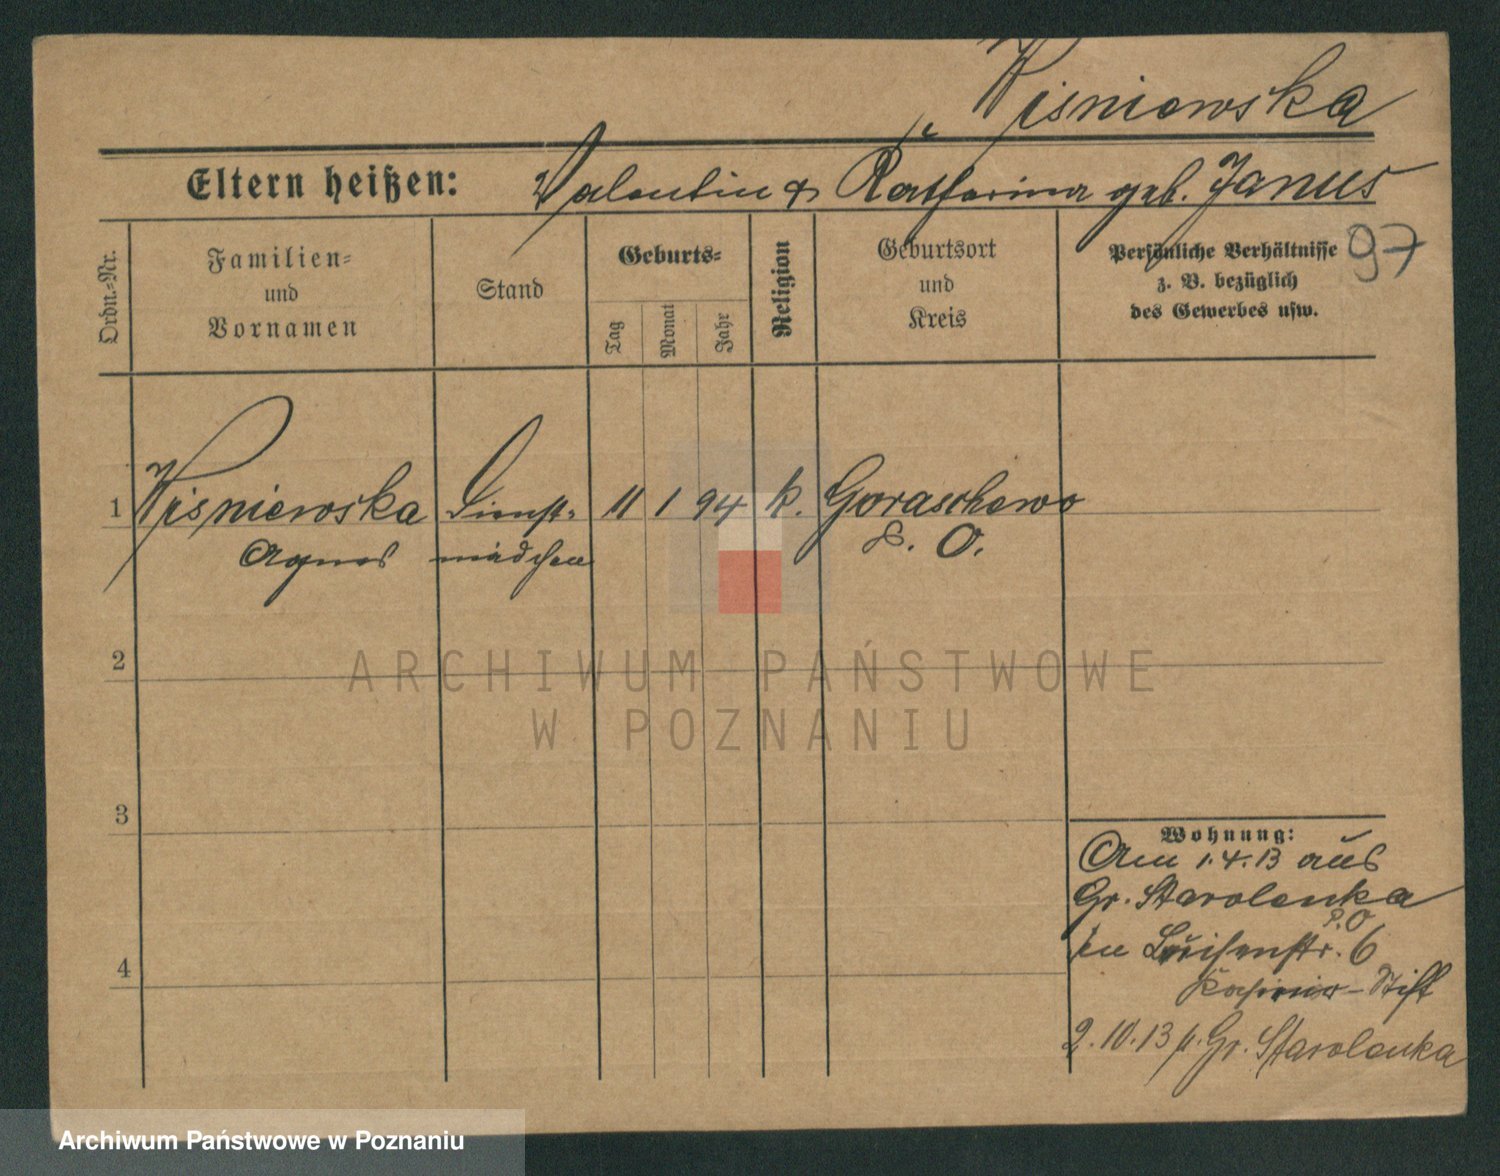 Wisniewska
Eltern heißen: Valentin & Katharina geb. Janus
97
Ordn.-Nr.
Familien-
und
Vornamen
Stand
Geburts-
Tag
Monat
Jahr
Religion
Geburtsort
und
Kreis
Persönliche Verhältnisse
z. B. bezüglich
des Gewerbes usw.
1 Wisniewska Dienst- 11 1 94 k. Goraschewo
Agnes mädchen P. O.
2
ARCHIWUM PAŃSTWOWE
W POZNANIU
3
Wohnung:
Am 1.4.13 aus
Gr. Starolenka
P. O
in Luisenstr. 6
4
Stift
2.10.13 n. Gr. Starolenka
Archiwum Państwowe w Poznaniu